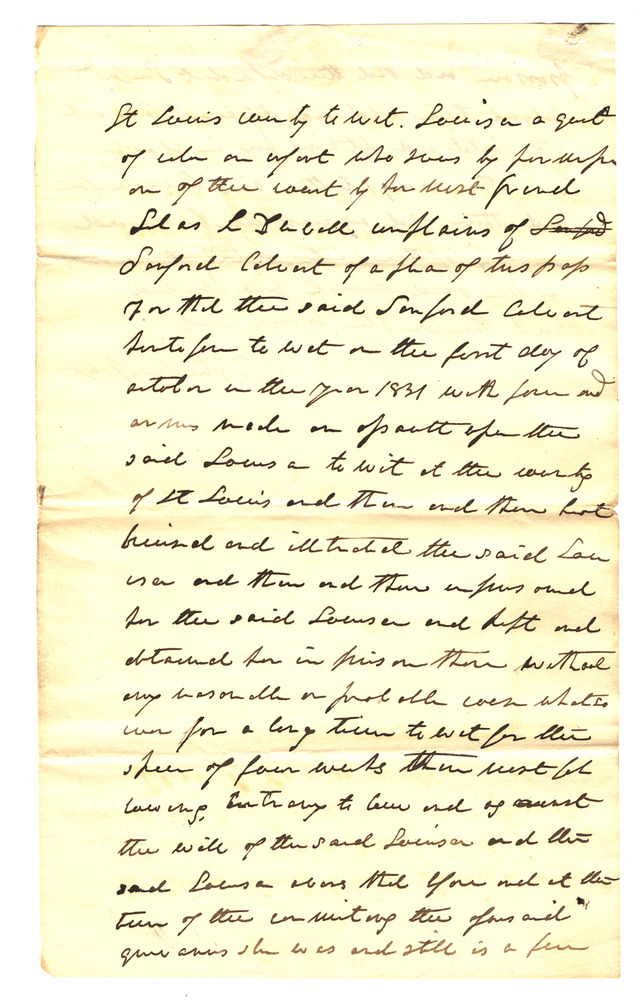 St Louis county to wit. Louisa a girl
of color an infant who sues by permission
on of the court by her next friend
Silas L complains of Sanford
Sanford Calvert of a plea of trespass
For that the said Sanford Calvert
heretofore to wit on the first day of
october in the year 1831 with force and
arms made an assault upon the
said Louisa to wit at the county
of St Louis and then and there beat
bruised and illtreated the said Lou
isa and then and there imprisoned
her the said Louisa and kept and
detained her in prison there without
any reasonable or probable cause whatso
ever for a long time to wit for the
space of four weeks then next fol
lowing. Contrary to law and against
the will of the said Louisa and the
said Louisa avers that before and at the
time of the committing the aforesaid
grievances she was and still is a free